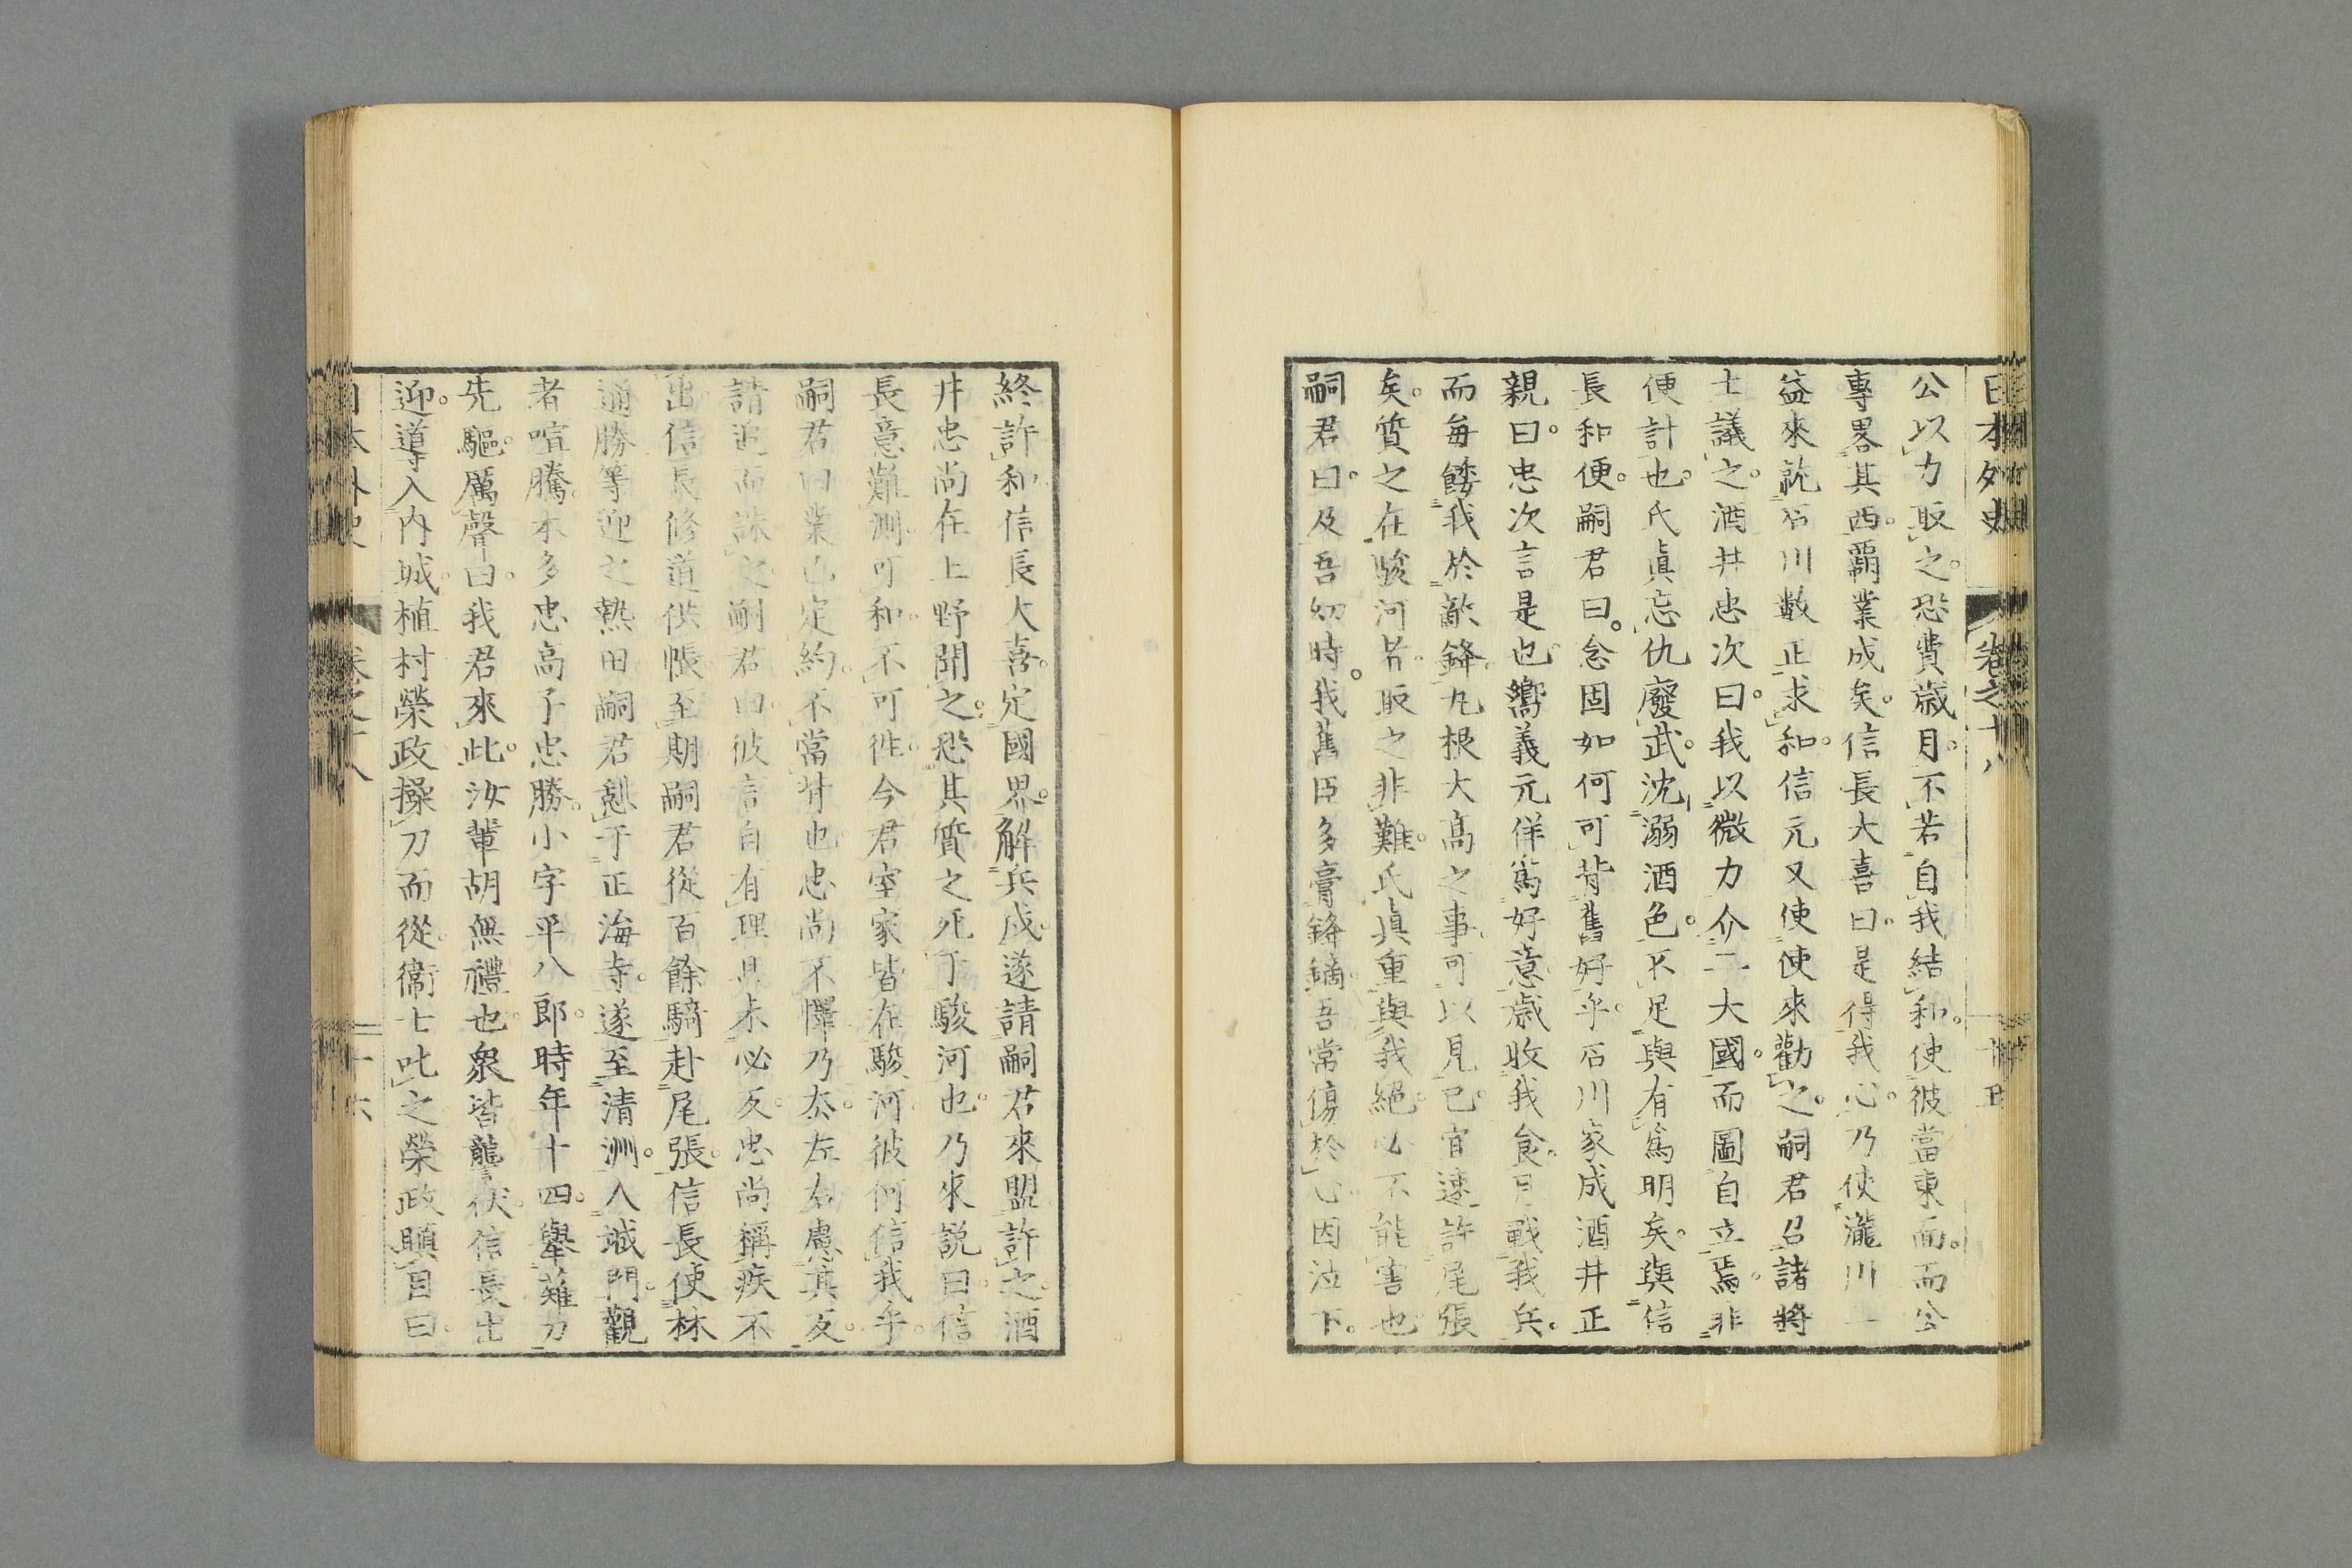 日本外史 卷之十八
公以力取之。恐費歳月。不若自我結和。使彼當東面。而公
專畧其西。覇業成矣。信長大喜曰。是得我心。乃使瀧川一
益來説石川數正求和。信元又使使來勸之。嗣君召諸將
士議之。酒井忠次曰。我以微力介二大國。而圖自立焉。非
便計也。氏眞忘仇廢武。沈溺酒色。不足與有爲明矣。與信
長和便。嗣君曰。念固如何可背舊好乎。石川家成酒井正
親曰。忠次言是也。嚮義元佯爲好意。歳收我食。月戰我兵。
而毎餧我於敵鋒。丸根大高之事。可以見已。宜速許尾張
矣。質之在駿河者。取之非難。氏眞重與我絕。必不能害也
嗣君曰。及吾幼時。我舊臣多膏鋒鏑。吾常傷於心。因泣下。
終許和。信長大喜。定國界。解兵戍。遂請嗣君來盟。許之。酒
井忠尚在上野聞之。恐其質之死于駿河也。乃來説曰。信
長意難測。可和。不可徃。今君室家皆在駿河。彼何信我乎。
嗣君曰。業已定約。不當背也。忠尚不懌。乃去。左右慮其反。
請追而誅之。嗣君曰。彼言自有理。且未必反。忠尚稱疾不
出。信長修道供帳。至期嗣君從百餘騎赴尾張。信長使林
通勝等迎之熱田。嗣君憩于正海寺。遂至清洲。入城門。觀
者喧騰。本多忠高子忠勝。小字平八郎。時年十四。擧薙刀
先驅。厲聲曰。我君來此。汝輩胡無禮也。衆皆讋伏。信長出
迎。導入内城。植村榮政操刀而從。衞士叱之。榮政瞋目曰。
日本外史 卷之十八 十六